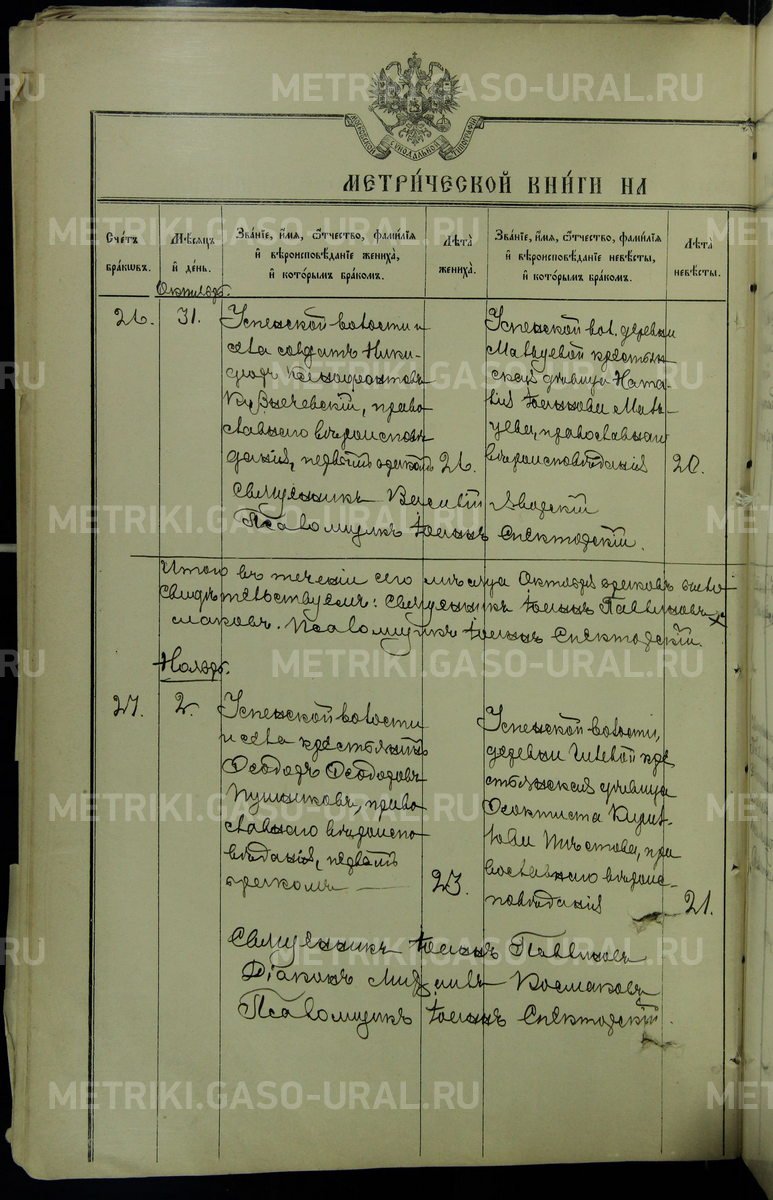 МОСКОВСКОЙ СѴНОДАЛЬНОЙ ТИПОГРАФІИ
МЕТРИ́ЧЕСКОЙ КНИ́ГИ НА
Сче́тъ бра́кѡвъ.
Мѣ́сяцъ и҆ де́нь.
Зва́нїе, и҆́мя, ѻ҆́тчество, фами́лїя
и҆ вѣроисповѣ́данїе жениха̀,
и҆ кото́рымъ бра́комъ.
Лѣта̀ жениха̀.
Зва́нїе, и҆́мя, ѻ҆́тчество, фами́лїя
и҆ вѣроисповѣ́данїе невѣ́сты,
и҆ кото́рымъ бра́комъ.
Лѣта̀ невѣ́сты.
Октябрь.
26.
31.
Успенской волости и
села солдатъ Ники-
форъ
православнаго вѣроисповѣ
данія, первымъ бракомъ
26.
Успенской вол. деревни
Матвѣевой крестьян
ская дѣвица Ната
лія Іоаннова Мат-
ѣева, православнаго
вѣроисповѣданія
20.
Священникъ Василій
Псаломщикъ Іоаннъ Спекторскій.
Итого въ теченіи сего мѣсяца Октября браковъ было
Свидѣтельствуемъ: Священникъ Іоаннъ Павлиновъ
Псаломщикъ Іоаннъ Спекторскій.
Ноябрь.
27.
2.
Успенской волости
и села крестьянинъ
Ѳеодоръ Ѳеодоровъ
право
славнаго вѣроиспо
вѣданія, первымъ
бракомъ
23.
Успенской волости,
деревни кре
стьянская дѣвица
Ѳеоктиста Кирил
лова пра
вославнаго вѣроис-
повѣданія
21.
Священникъ Іоаннъ Павлиновъ
Діаконъ Космаковъ
Псаломщикъ Іоаннъ Спекторскій.
METRIKI.GASO-URAL.RU